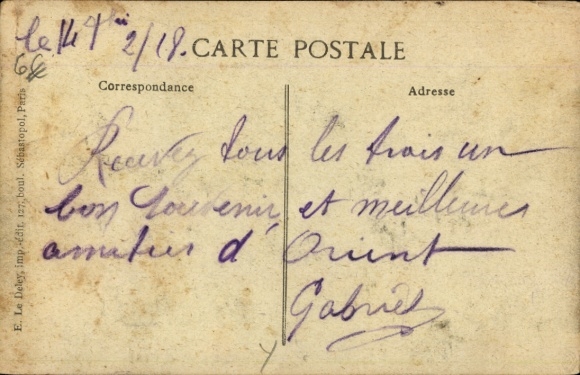 le 14 2/18.
CARTE POSTALE
Correspondance
Adresse
Recevez tous les trois un
bon souvenir, et meilleures
amities d'Orient
Gabriel
E. Le Deley, imp.-édit, 127, boul. Sébastopol, Paris